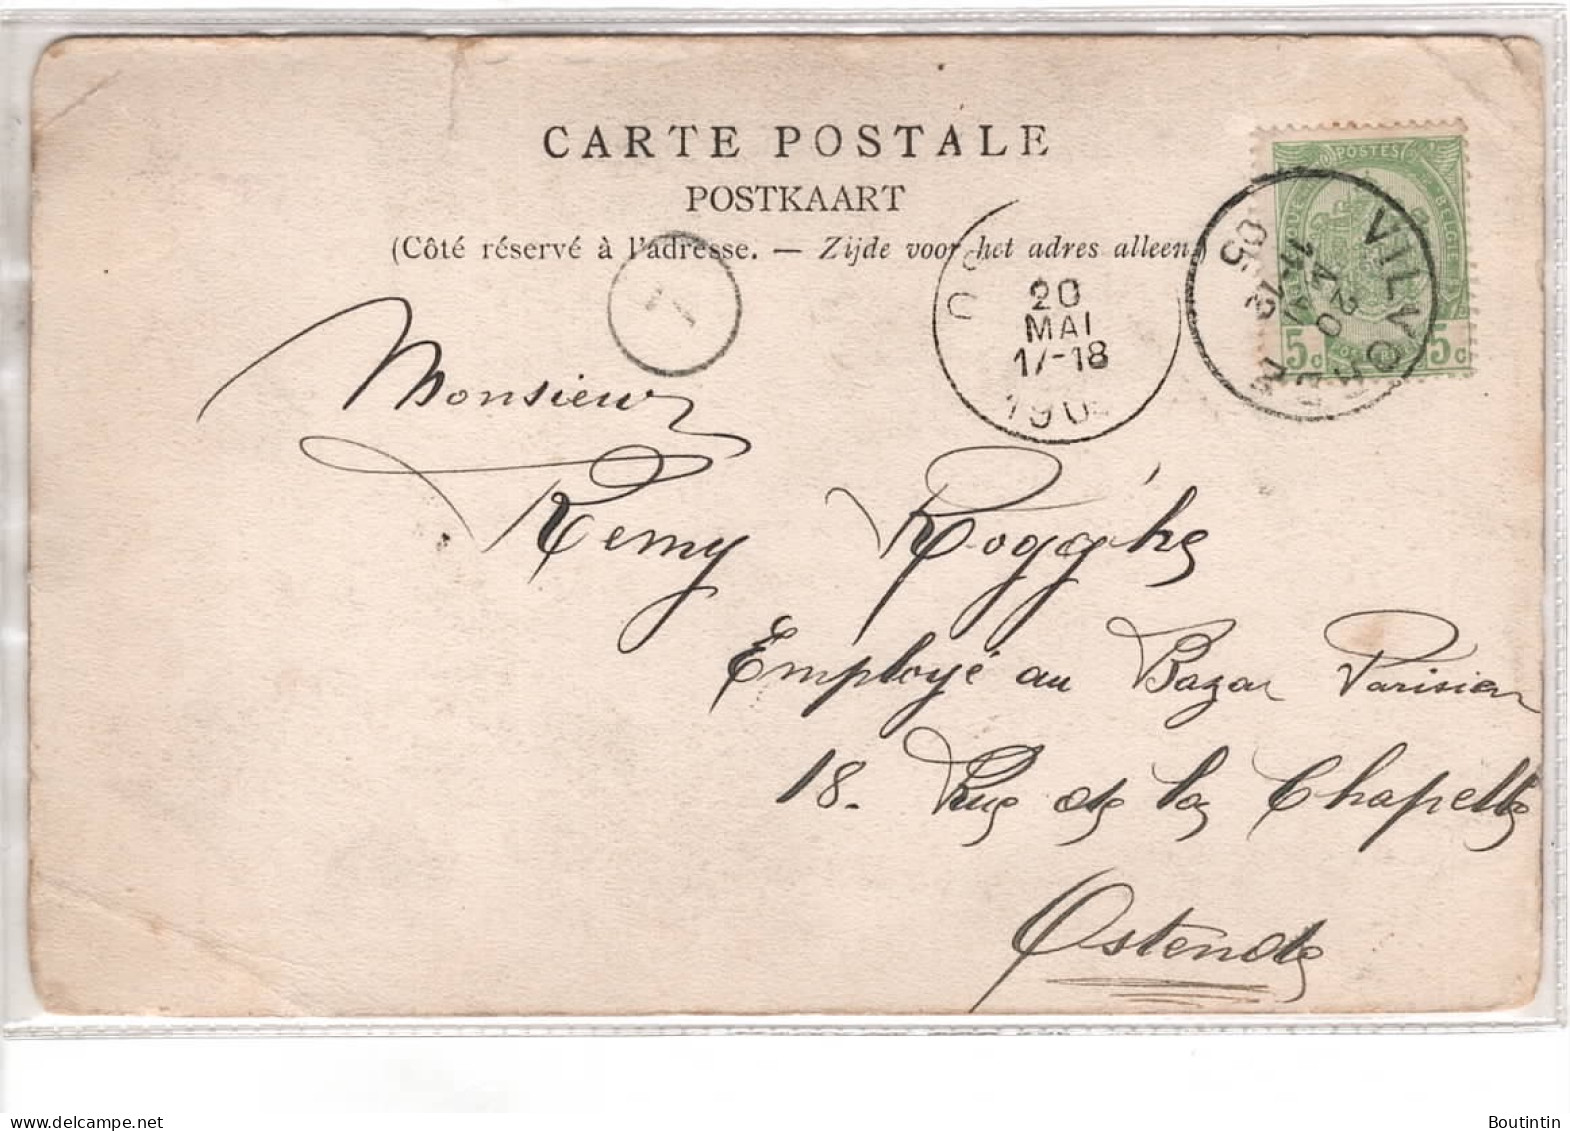 CARTE POSTALE
POSTKAART
(Côté réservé à l'adresse. — Zijde voor het adres alleen.)
POSTES
BELGIE
5c 5c
VILVORDE
20
11-12
05
20
MAI
17-18
190
Monsieur
Remy Rogghe
Employé au Bazar Parisien
18. Rue de la Chapelle
Ostende
www.delcampe.net
Boutintin